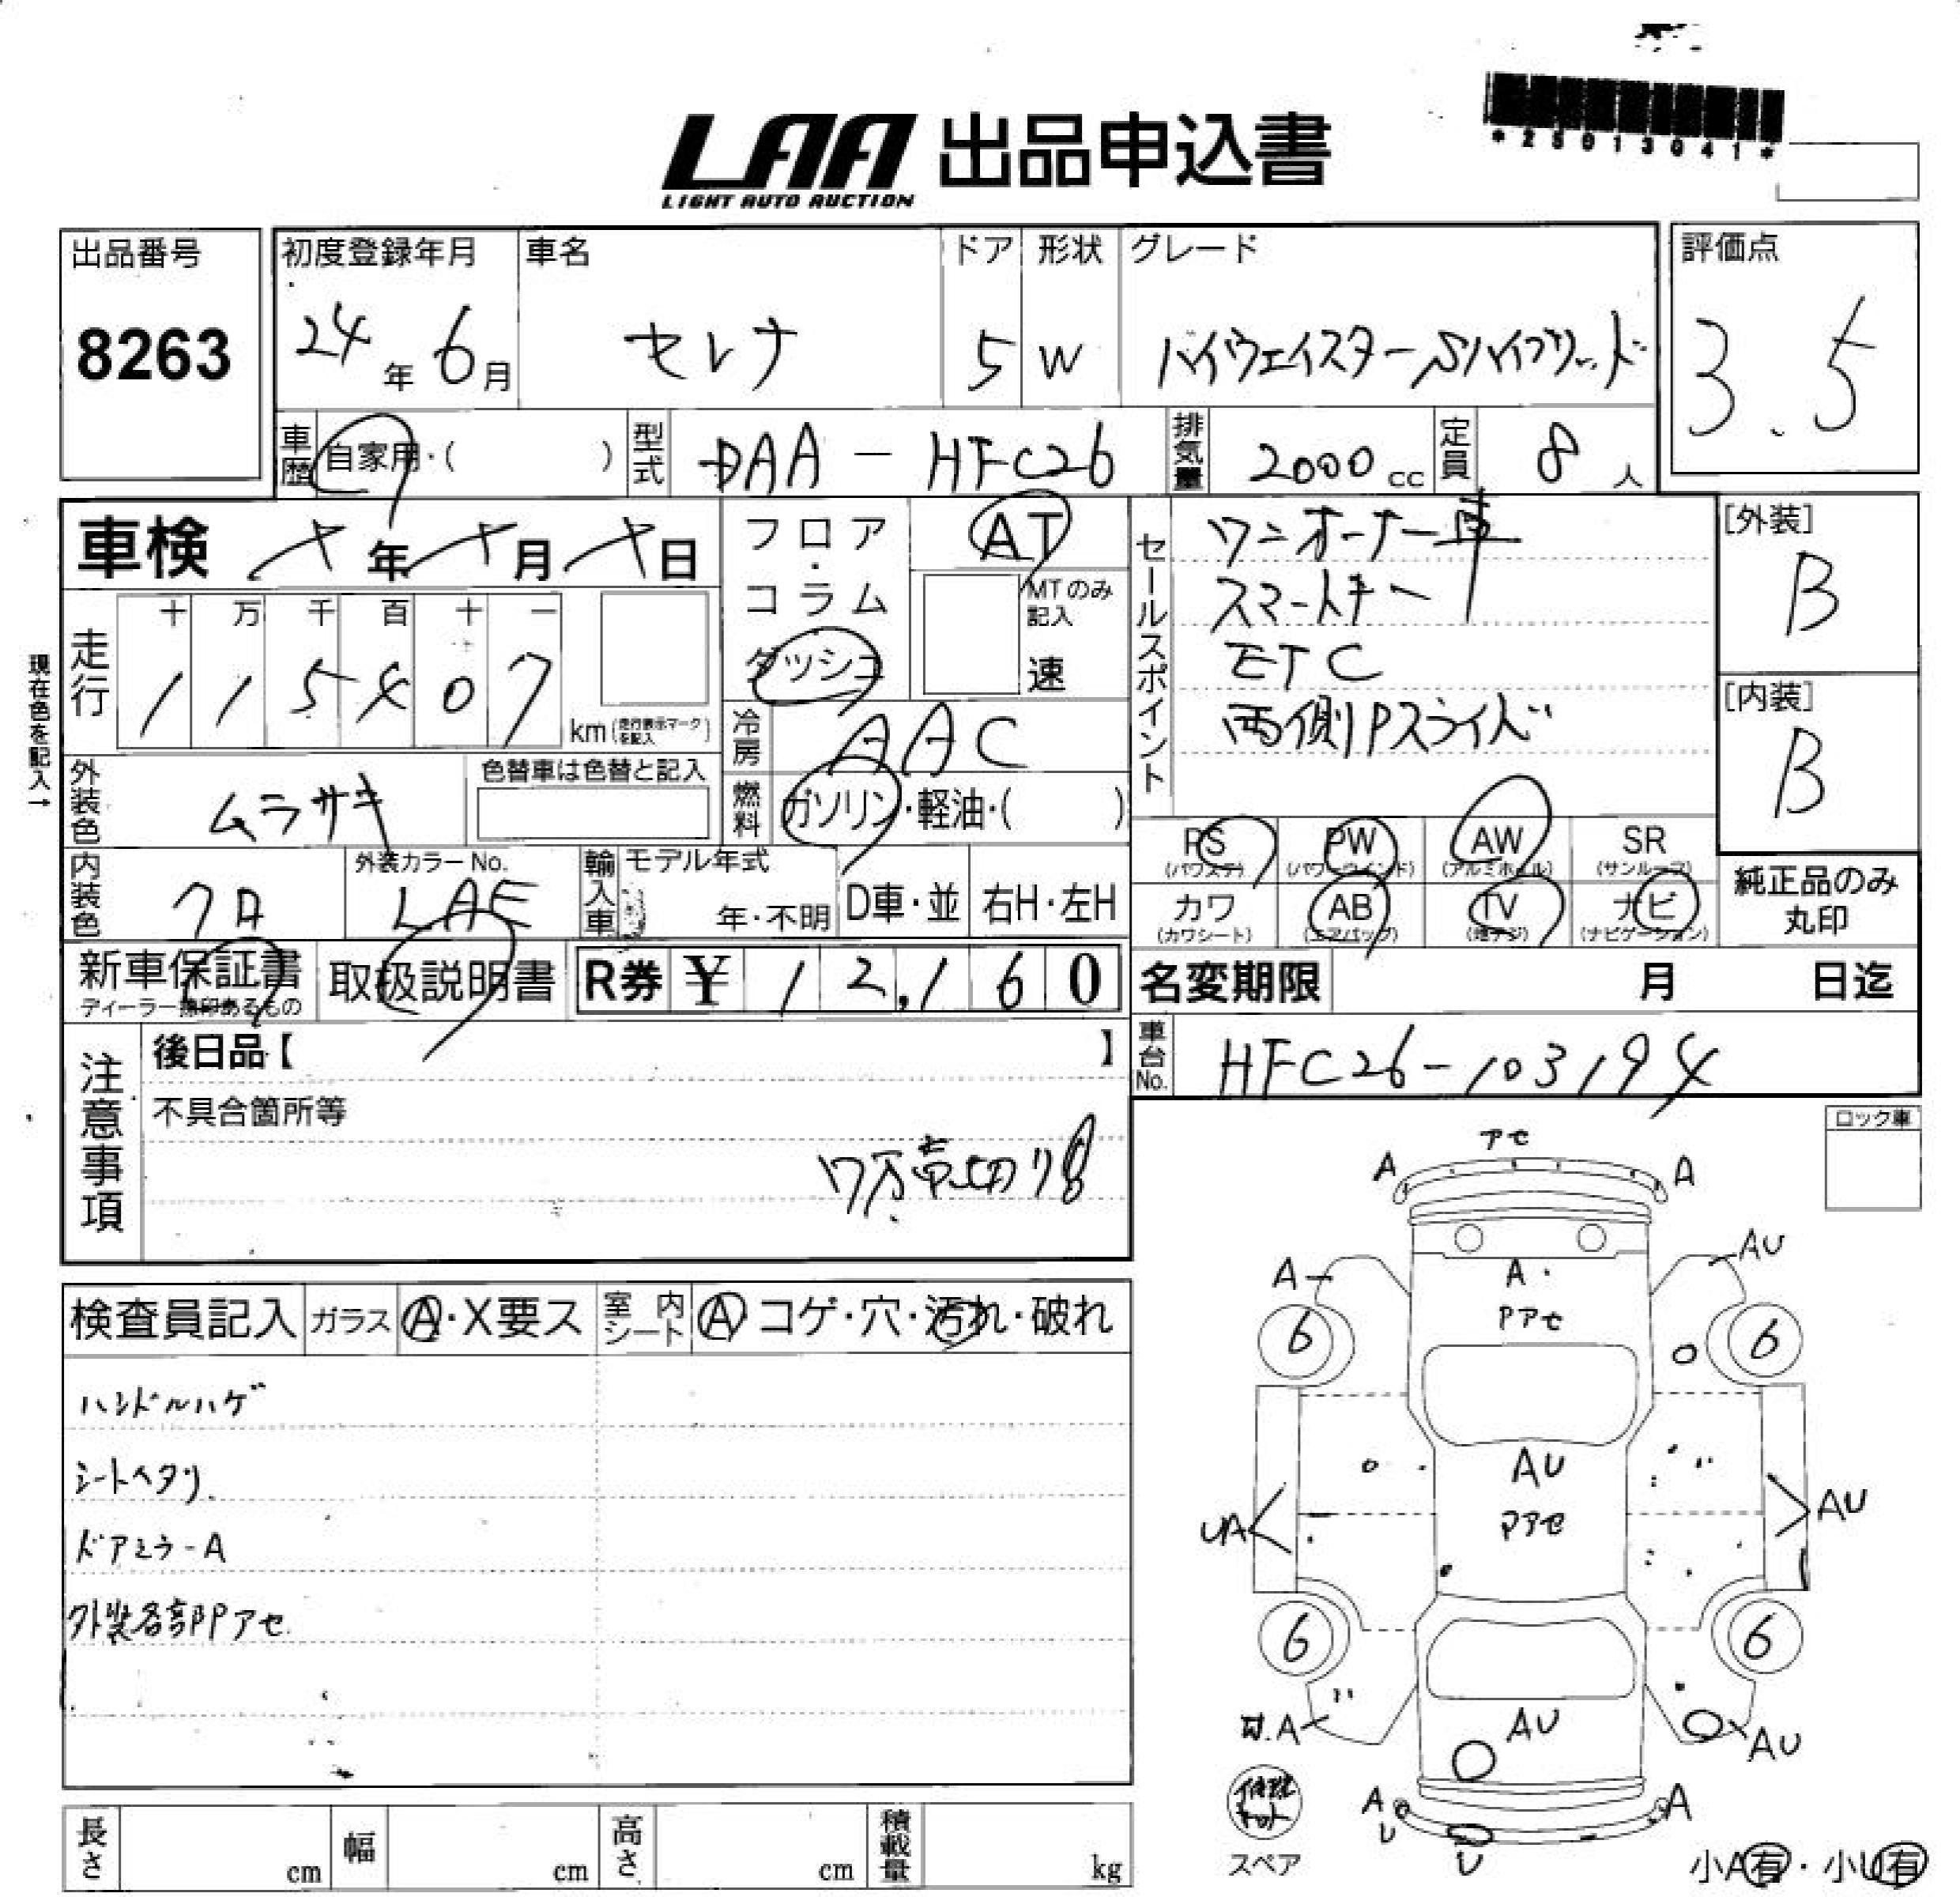 *25013041*
LAA 出品申込書
LIGHT AUTO AUCTION
出品番号
8263
初度登録年月
24年6月
車名
セレナ
ドア
5
形状
W
グレード
ハイウェイスターSハイブリッド
評価点
3.5
車歴
自家用・( )
型式
DAA-HFC26
排気量
2000cc
定員
8人
車検
年 月 日
フロア・コラム
ダッシュ
AT
MTのみ記入
速
セールスポイント
ワンオーナー車
スマートキー
ETC
両側Pスライド
[外装]
B
[内装]
B
現在色を記入→
走行
十 万 千 百 十 一
1 1 5 4 0 7
km(走行表示マークを記入)
冷房
AAC
外装色
ムラサキ
色替車は色替と記入
燃料
ガソリン・軽油・( )
PS
(パワステ)
PW
(パワーウインド)
AW
(アルミホイル)
SR
(サンルーフ)
カワ
(カワシート)
AB
(エアバッグ)
TV
(地デジ)
ナビ
(ナビゲーション)
純正品のみ
丸印
内装色
クロ
外装カラーNo.
LAE
輸入車
モデル年式
年・不明
D車・並
右H・左H
新車保証書
ディーラー捺印あるもの
取扱説明書
R券 ¥12,160
名変期限 月 日迄
注意事項
後日品【 】
不具合箇所等
売切り
車台No.
HFC26-103194
ロック車
検査員記入
ガラス
A・X要ス
室内シート
A コゲ・穴・汚れ・破れ
ハンドルハゲ
シートヘタリ
ドアミラーA
外装各部Pアセ
アセ
A A
A AU
A
Pアセ
6 6
AU
Pアセ
UA AU
6 6
AU
W.A AU
A A
U U
修理キット
スペア
小A有・小U有
長さ cm
幅 cm
高さ cm
積載量 kg